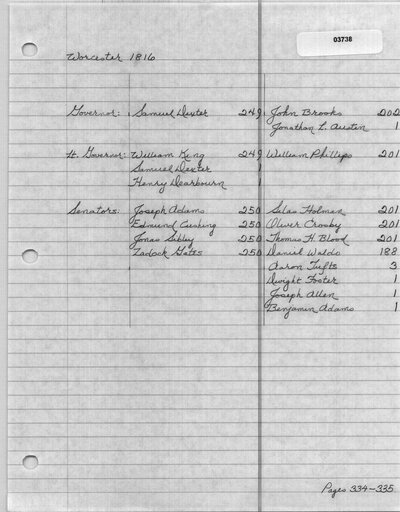 03738
Worcester 1816
Governor: Samuel Dexter 249 John Brooks 202
Jonathan L. Austin 1
Lt. Governor: William King 249 William Phillips 201
Samuel Dexter 1
Henry Dearbourn 1
Senators: Joseph Adams 250 Silas Holman 201
Edmund Cushing 250 Oliver Crosby 201
Jonas Sibley 250 Thomas H. Blood 201
Zadock Gates 250 Daniel Waldo 188
Aaron Tufts 3
Dwight Foster 1
Joseph Allen 1
Benjamin Adams 1
Pages 334-335